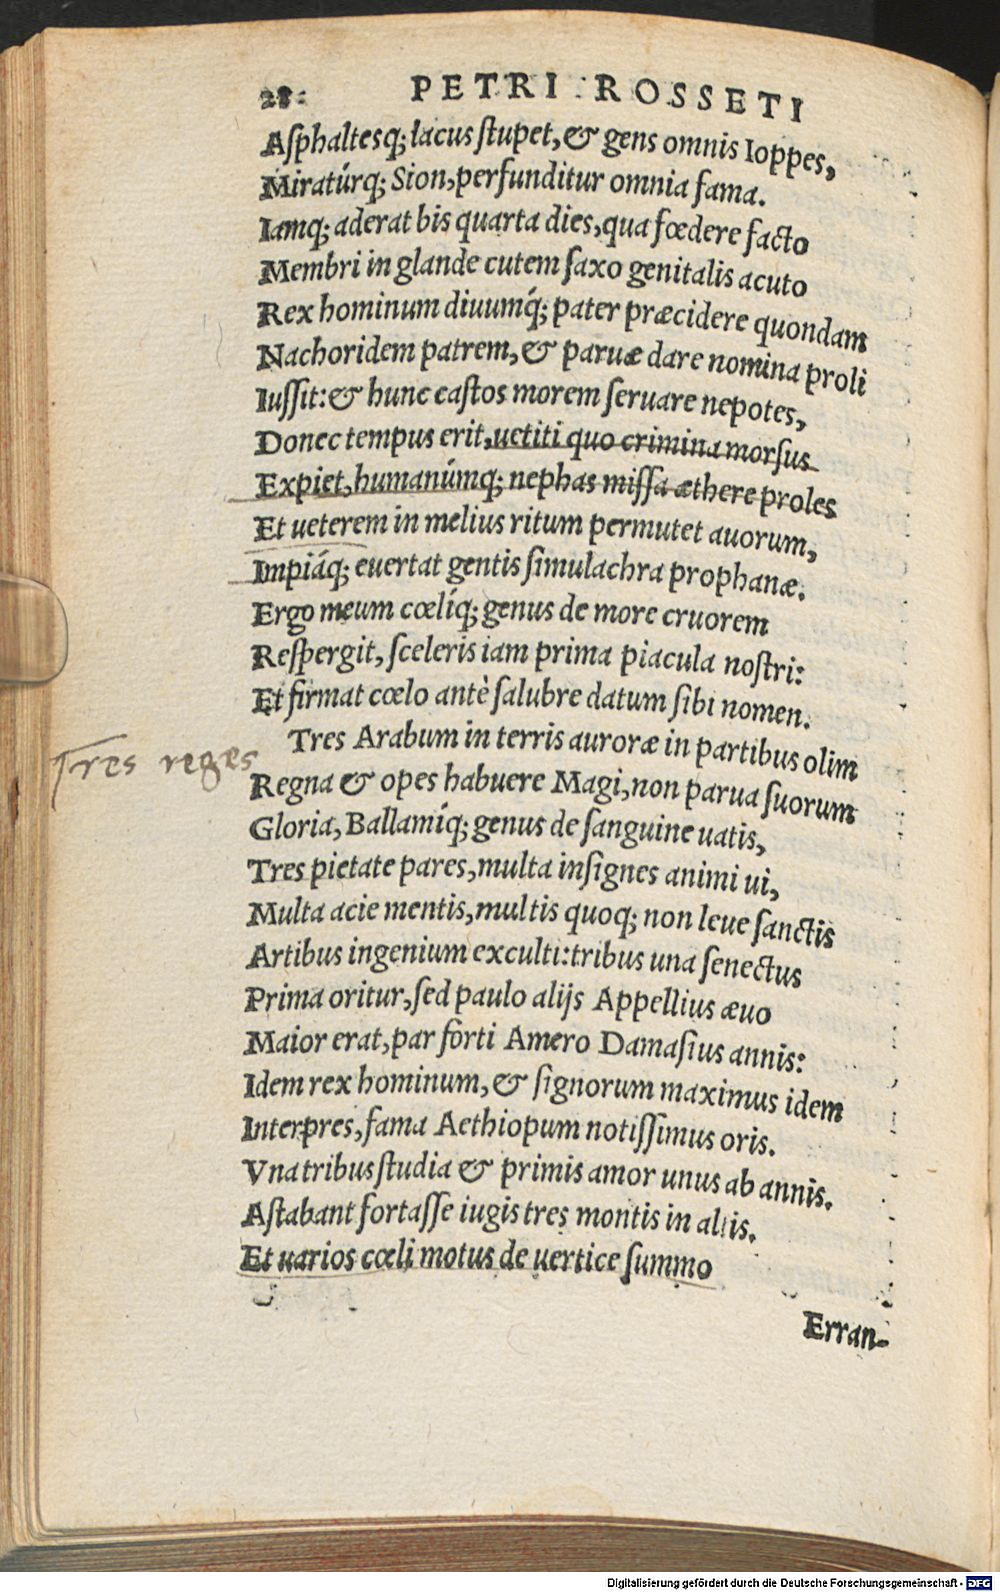 28. PETRI ROSSETI
Aſphaltesq; lacus ſtupet, & gens omnis Ioppes,
Miratúrq; Sion, perfunditur omnia fama.
Iamq; aderat bis quarta dies, qua fœdere facto
Membri in glande cutem ſaxo genitalis acuto
Rex hominum diuumq́; pater præcidere quondam
Nachoridem patrem, & paruæ dare nomina proli
Iuſſit: & hunc caſtos morem ſeruare nepotes,
Donec tempus erit, uetiti quo crimina morſus
Expiet, humanúmq; nephas miſſa æthere proles
Et ueterem in melius ritum permutet auorum,
Impiáq; euertat gentis ſimulachra prophanæ.
Ergo meum cœlíq; genus de more cruorem
Reſpergit, ſceleris iam prima piacula noſtri:
Et firmat cœlo antè ſalubre datum ſibi nomen.
Tres Arabum in terris auroræ in partibus olim
Tres reges
Regna & opes habuere Magi, non parua ſuorum
Gloria, Ballamíq; genus de ſanguine uatis,
Tres pietate pares, multa inſignes animi ui,
Multa acie mentis, multis quoq; non leue ſanctis
Artibus ingenium exculti: tribus una ſenectus
Prima oritur, ſed paulo alijs Appellius æuo
Maior erat, par forti Amero Damaſius annis:
Idem rex hominum, & ſignorum maximus idem
Interpres, fama Aethiopum notiſſimus oris.
Vna tribus ſtudia & primis amor unus ab annis.
Aſtabant fortaſſe iugis tres montis in altis.
Et uarios cœli motus de uertice ſummo
Erran-
Digitalisierung gefördert durch die Deutsche Forschungsgemeinschaft - DFG